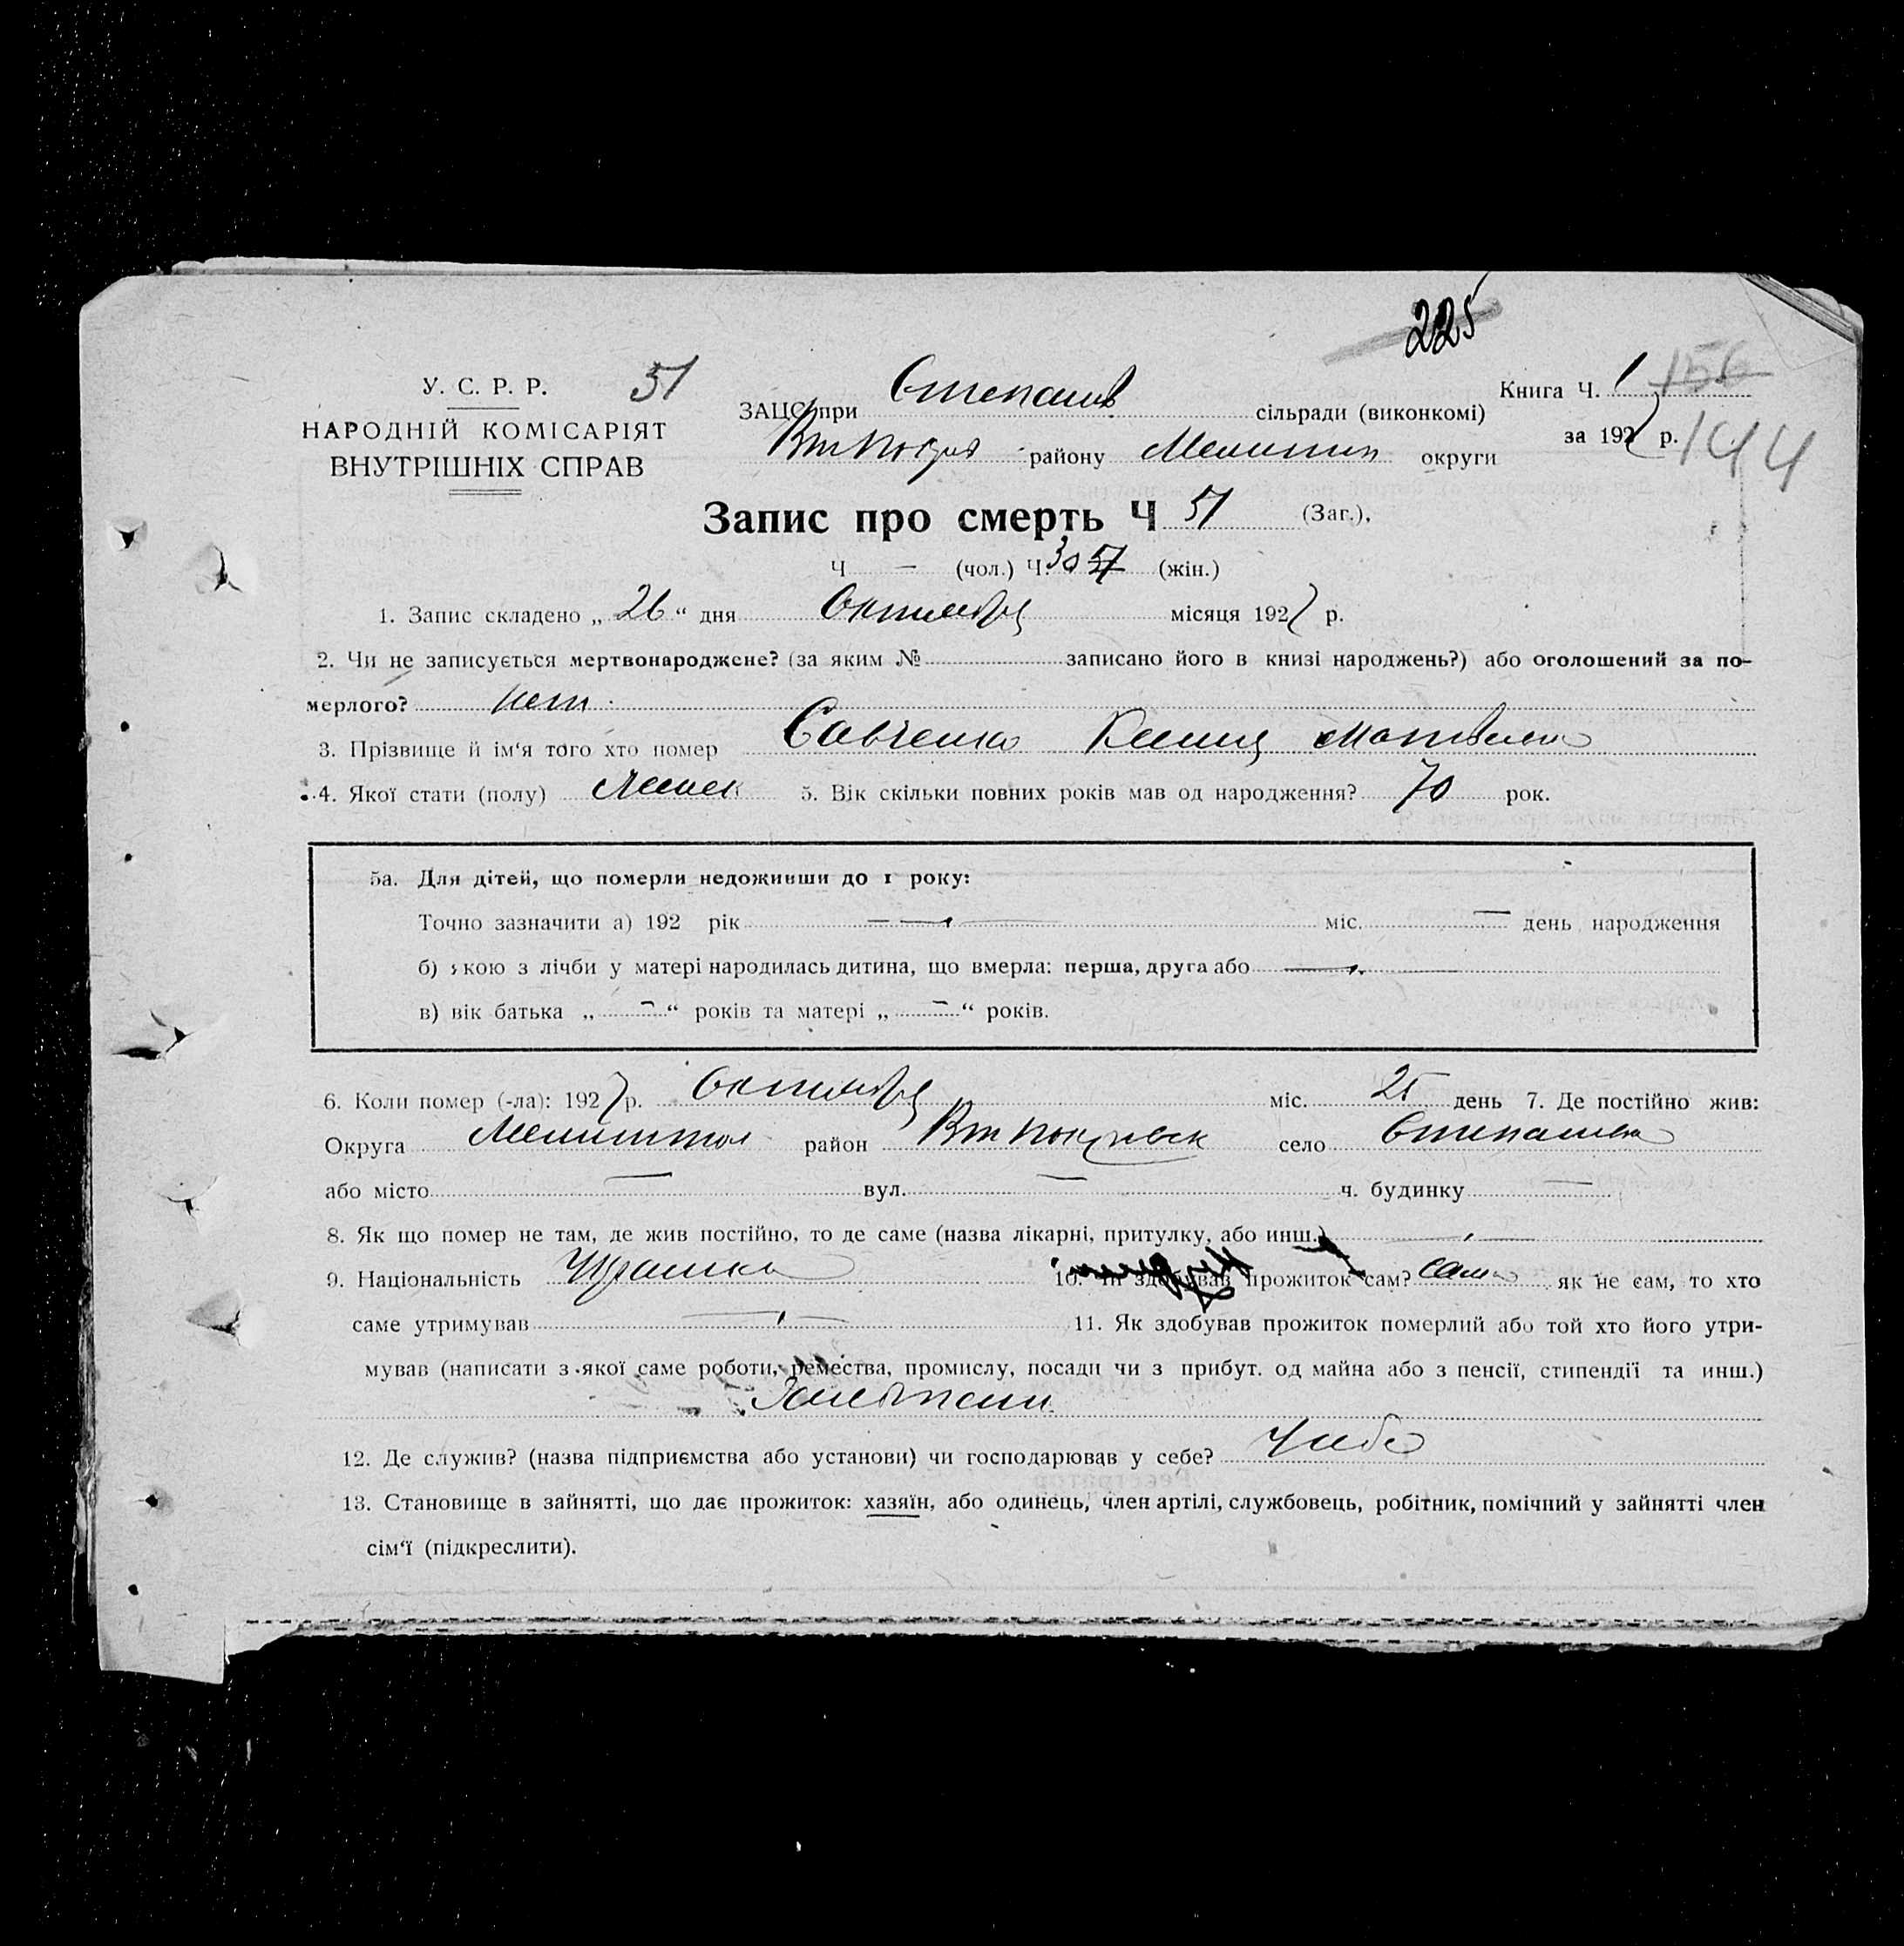 225
У. С. Р. Р. 51
ЗАЦС при Степанів сільради (виконкомі) Книга Ч. 1 156
НАРОДНІЙ КОМІСАРІЯТ
району округи за 1927 р. 144
ВНУТРІШНІХ СПРАВ
Запис про смерть Ч 51 (Заг.),
Ч — (чол.) Ч. 30 (жін.)
1. Запис складено „ 26 “ дня Октября місяця 1927 р.
2. Чи не записується мертвонароджене? (за яким № записано його в книзі народжень?) або оголошений за по-
мерлого? нет.
3. Прізвище й ім‘я того хто помер Савченко Матвеевна
4. Якої стати (полу) 5. Вік скільки повних років мав од народження? 70 рок.
5а. Для дітей, що померли недоживши до 1 року:
Точно зазначити а) 192 рік — міс. — день народження
б) якою з лічби у матері народилась дитина, що вмерла: перша, друга або —
в) вік батька „ — “ років та матері „ — “ років.
6. Коли помер (-ла): 1927 р. Октября міс. 25 день 7. Де постійно жив:
Округа Мелитопол район Вт Покровск село Степановка
або місто — вул. — ч. будинку —
8. Як що помер не там, де жив постійно, то де саме (назва лікарні, притулку, або инш.) —
9. Національність 10. Чи здобував прожиток сам? сама як не сам, то хто
саме утримував — 11. Як здобував прожиток померлий або той хто його утри-
мував (написати з якої саме роботи, ремества, промислу, посади чи з прибут. од майна або з пенсії, стипендії та инш.)
12. Де служив? (назва підприємства або установи) чи господарював у себе? У себе
13. Становище в зайнятті, що дає прожиток: хазяїн, або одинець, член артілі, службовець, робітник, помічний у зайнятті член
сім‘ї (підкреслити).